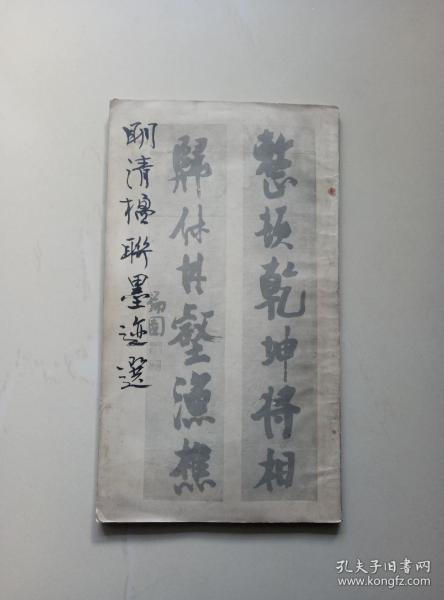 明清楹聯墨迹選
整頓乾坤將相
歸休林壑漁樵
瑞圖
孔夫子旧书网
www.kongfz.com